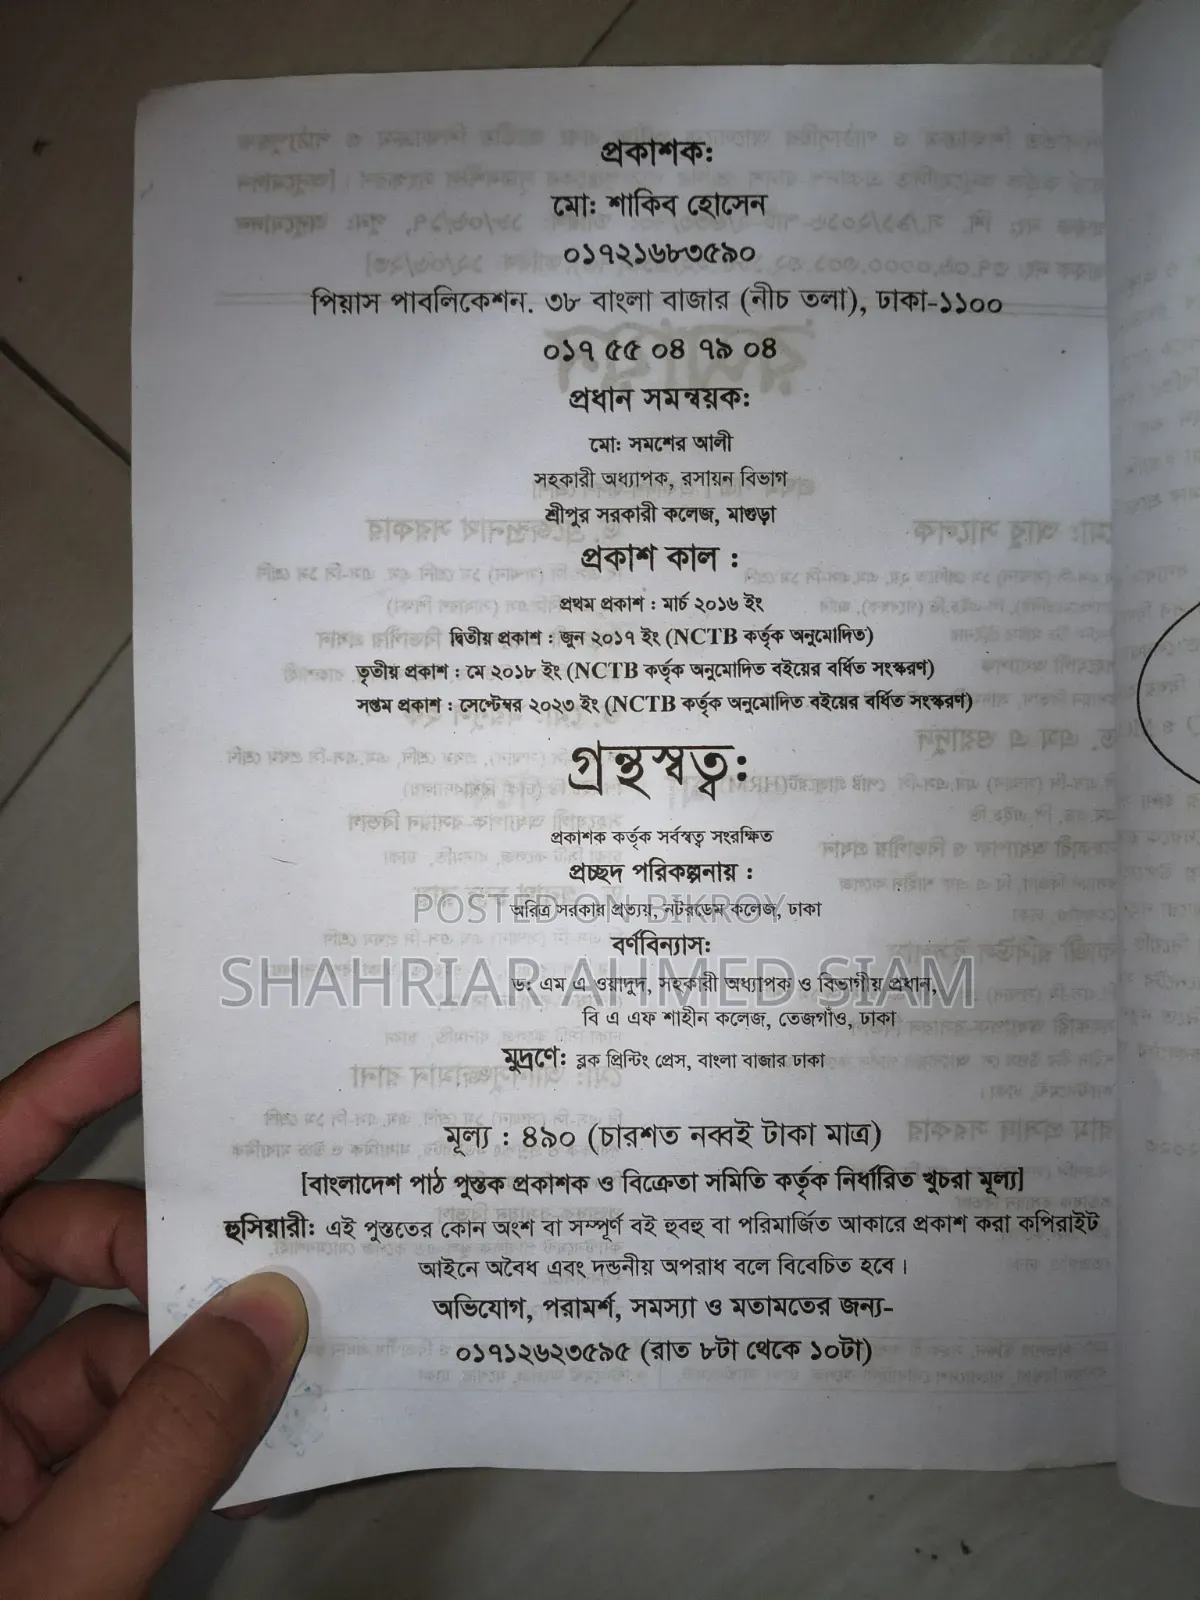 প্রকাশক:
মো: শাকিব হোসেন
০১৭২১৬৮৩৫৯০
পিয়াস পাবলিকেশন. ৩৮ বাংলা বাজার (নীচ তলা), ঢাকা-১১০০
০১৭ ৫৫ ০৪ ৭৯ ০৪
প্রধান সমন্বয়ক:
মো: সমশের আলী
সহকারী অধ্যাপক, রসায়ন বিভাগ
শ্রীপুর সরকারী কলেজ, মাগুড়া
প্রকাশ কাল :
প্রথম প্রকাশ : মার্চ ২০১৬ ইং
দ্বিতীয় প্রকাশ : জুন ২০১৭ ইং (NCTB কর্তৃক অনুমোদিত)
তৃতীয় প্রকাশ : মে ২০১৮ ইং (NCTB কর্তৃক অনুমোদিত বইয়ের বর্ধিত সংস্করণ)
সপ্তম প্রকাশ : সেপ্টেম্বর ২০২৩ ইং (NCTB কর্তৃক অনুমোদিত বইয়ের বর্ধিত সংস্করণ)
গ্রন্থস্বত্ব:
প্রকাশক কর্তৃক সর্বস্বত্ব সংরক্ষিত
প্রচ্ছদ পরিকল্পনায় :
অরিত্র সরকার প্রত্যয়, নটরডেম কলেজ, ঢাকা
POSTED ON BIKROY
বর্ণবিন্যাস:
SHAHRIAR AHMED SIAM
ড: এম এ ওয়াদুদ, সহকারী অধ্যাপক ও বিভাগীয় প্রধান,
বি এ এফ শাহীন কলেজ, তেজগাঁও, ঢাকা
মুদ্রণে: ব্লক প্রিন্টিং প্রেস, বাংলা বাজার ঢাকা
মূল্য : ৪৯০ (চারশত নব্বই টাকা মাত্র)
[বাংলাদেশ পাঠ পুস্তক প্রকাশক ও বিক্রেতা সমিতি কর্তৃক নির্ধারিত খুচরা মূল্য]
হুসিয়ারী: এই পুস্ততের কোন অংশ বা সম্পূর্ণ বই হুবহু বা পরিমার্জিত আকারে প্রকাশ করা কপিরাইট
আইনে অবৈধ এবং দন্ডনীয় অপরাধ বলে বিবেচিত হবে।
অভিযোগ, পরামর্শ, সমস্যা ও মতামতের জন্য-
০১৭১২৬২৩৫৯৫ (রাত ৮টা থেকে ১০টা)